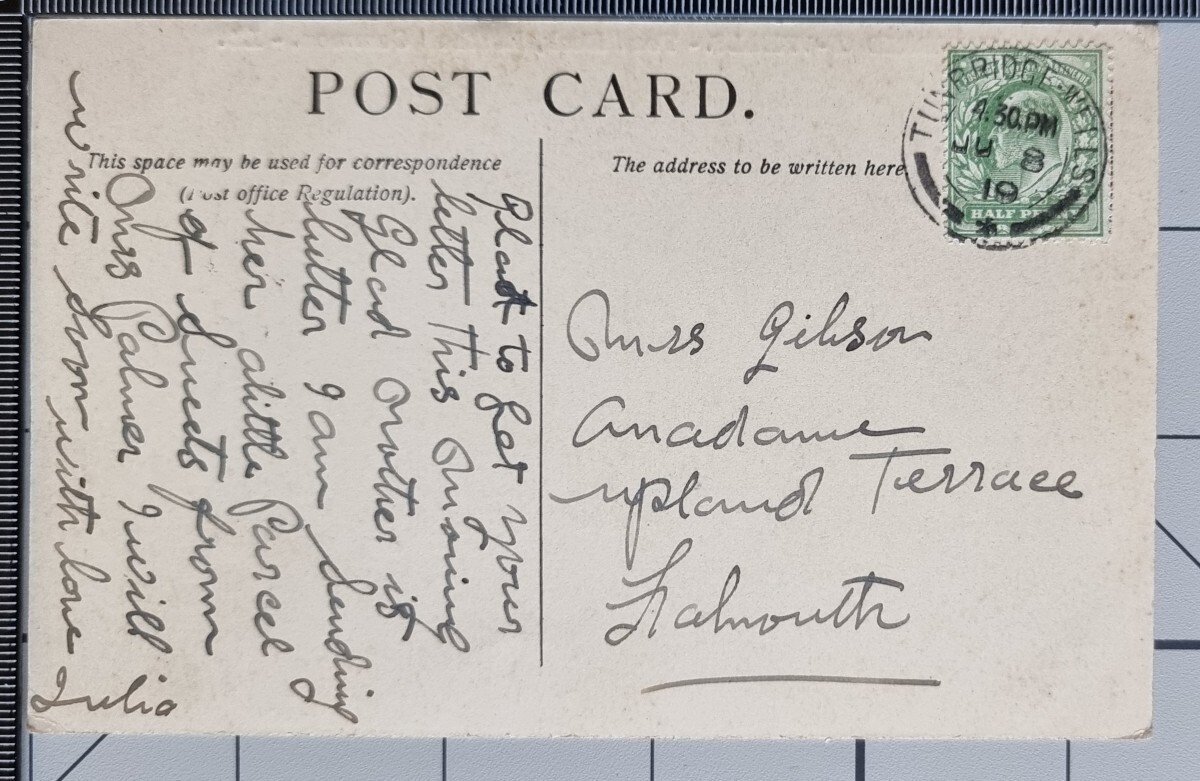 POST CARD.
This space may be used for correspondence
(Post office Regulation).
The address to be written here.
TUNBRIDGE-WELLS
4.30.PM
8
10
HALF PENNY
Glad to get your
letter This Morning
Glad Mother is
butter I am sending
her alittle Parcel
of Sweets from
Mrs Palmer I will
write soon with love
Julia
Mrs Gibson
Anadame
upland Terrace
Falmouth